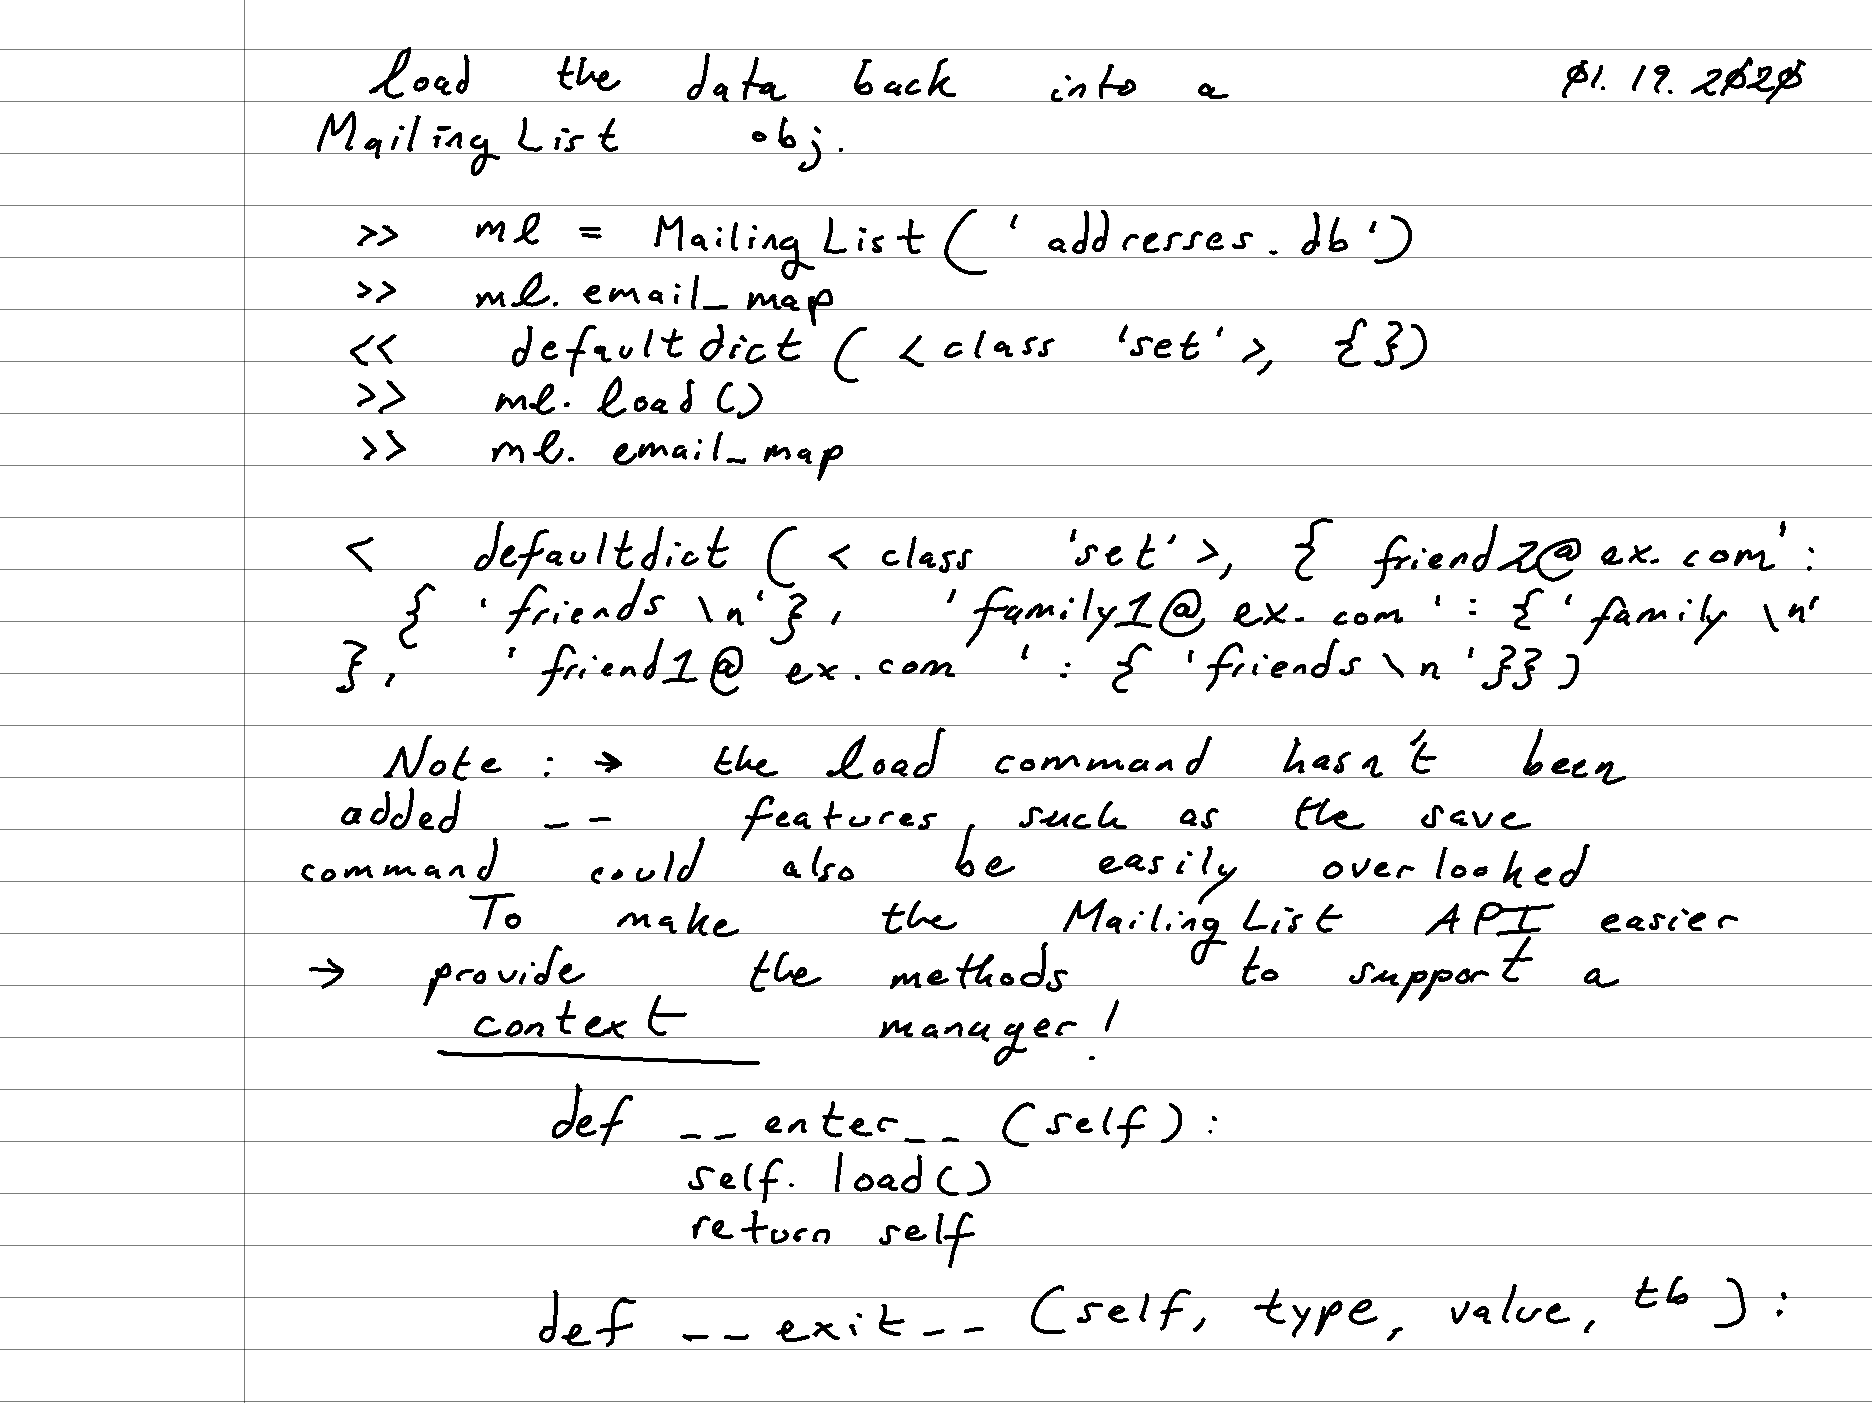 load the data back into a 01.19.2020
MailingList obj.
>> ml = MailingList('addresses.db')
>> ml.email_map
<< defaultdict(<class 'set'>, {})
>> ml.load()
>> ml.email_map
< defaultdict(<class 'set'>, { friend2@ex.com':
{ 'friends\n'}, 'family1@ex.com': {'family\n'
}, 'friend1@ex.com': {'friends\n'}})
Note: → the load command hasn't been
added -- features, such as the save
command could also be easily overlooked
To make the MailingList API easier
→ provide the methods to support a
context manager!
def __enter__(self):
self.load()
return self
def __exit__(self, type, value, tb):